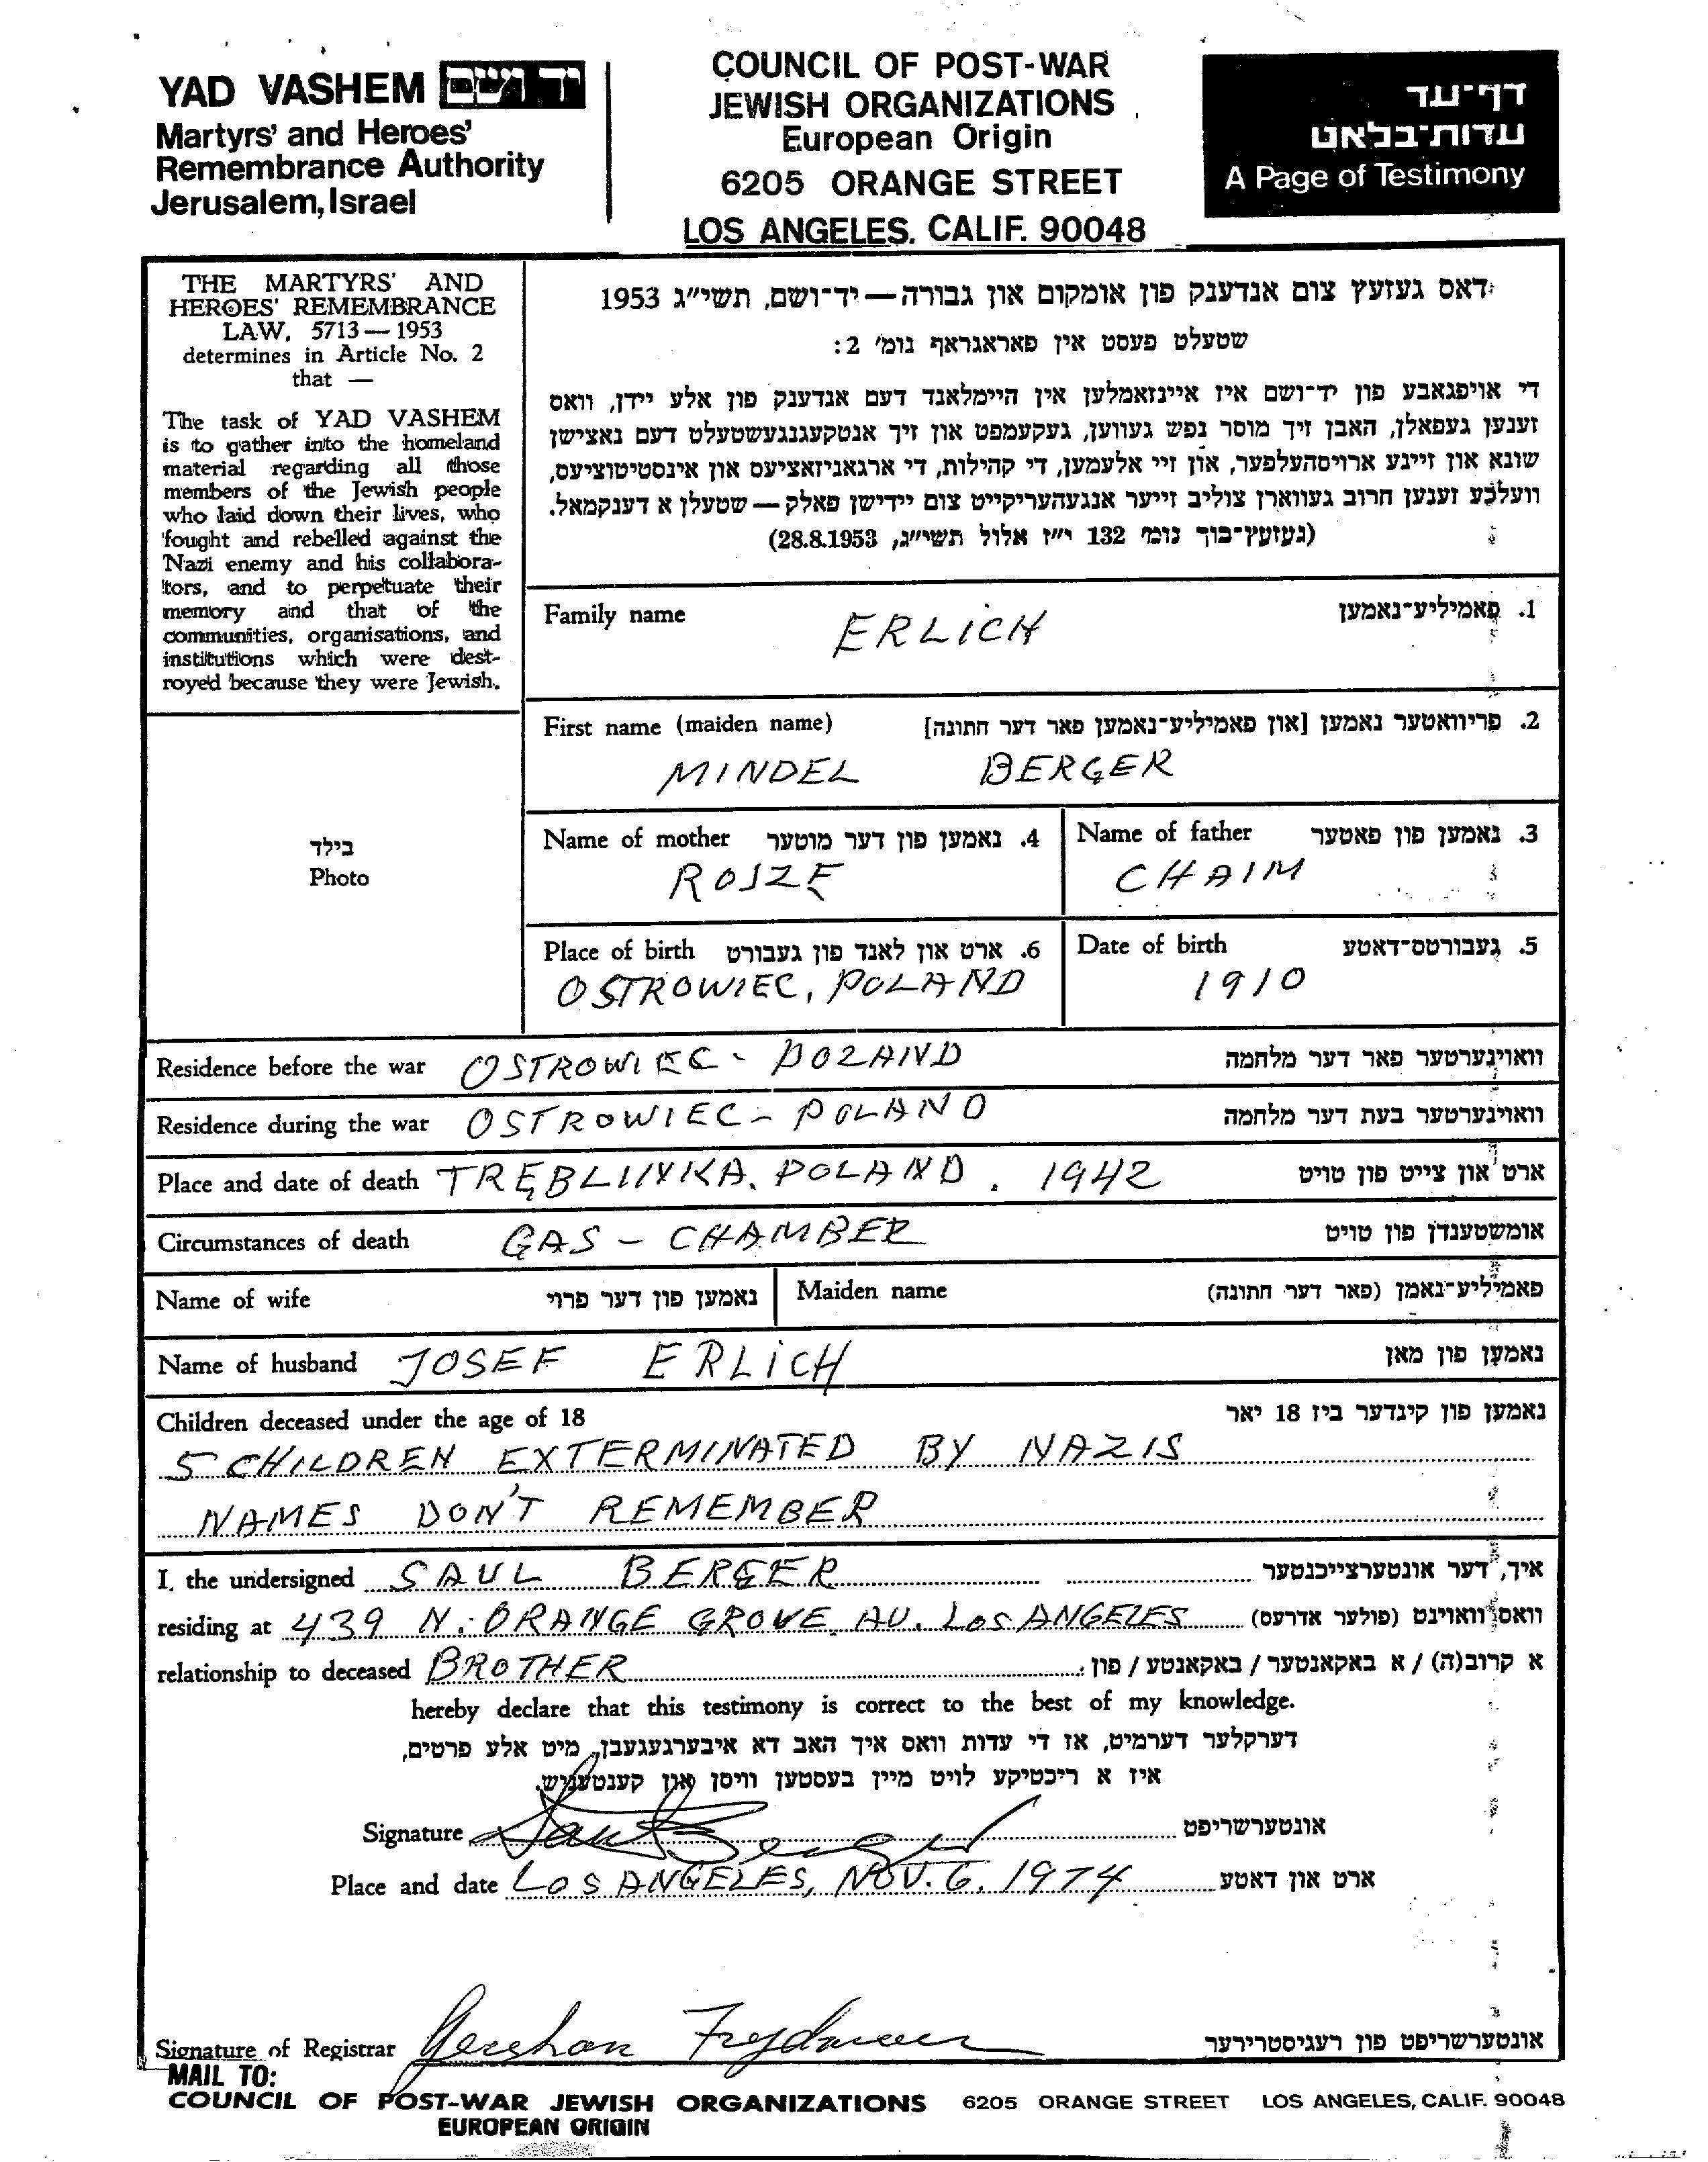 YAD VASHEM יד ושם
Martyrs' and Heroes'
Remembrance Authority
Jerusalem, Israel
COUNCIL OF POST-WAR
JEWISH ORGANIZATIONS
European Origin
6205 ORANGE STREET
LOS ANGELES. CALIF. 90048
דף-עד
עדות-בלאט
A Page of Testimony
THE MARTYRS' AND
HEROES' REMEMBRANCE
LAW, 5713 — 1953
determines in Article No. 2
that —
The task of YAD VASHEM
is to gather into the homeland
material regarding all those
members of the Jewish people
who laid down their lives, who
fought and rebelled against the
Nazi enemy and his collabora-
tors, and to perpetuate their
memory and that of the
communities, organisations, and
institutions which were dest-
royed because they were Jewish.
דאס געזעץ צום אנדענק פון אומקום און גבורה — יד-ושם, תשי"ג 1953
שטעלט פעסט אין פאראגראף נומ' 2:
די אויפגאבע פון יד-ושם איז איינזאמלען אין היימלאנד דעם אנדענק פון אלע יידן, וואס
זענען געפאלן, האבן זיך מוסר נפש געווען, געקעמפט און זיך אנטקעגנגעשטעלט דעם נאצישן
שונא און זיינע ארויסהעלפער, און זיי אלעמען, די קהילות, די ארגאניזאציעס און אינסטיטוציעס,
וועלכע זענען חרוב געווארן צוליב זייער אנגעהעריקייט צום יידישן פאלק — שטעלן א דענקמאל.
(געזעץ-בוך נומ' 132 י"ז אלול תשי"ג, 28.8.1953)
Family name ERLICH 1. פאמיליע-נאמען
First name (maiden name) 2. פריוואטער נאמען [און פאמיליע-נאמען פאר דער חתונה]
MINDEL BERGER
Name of mother 4. נאמען פון דער מוטער
ROJZE
Name of father 3. נאמען פון פאטער
CHAIM
Place of birth 6. ארט און לאנד פון געבורט
OSTROWIEC, POLAND
Date of birth 5. געבורטס-דאטע
1910
בילד
Photo
Residence before the war OSTROWIEC - POLAND וואוינערטער פאר דער מלחמה
Residence during the war OSTROWIEC - POLAND וואוינערטער בעת דער מלחמה
Place and date of death TREBLINKA. POLAND. 1942 ארט און צייט פון טויט
Circumstances of death GAS - CHAMBER אומשטענדן פון טויט
Name of wife נאמען פון דער פרוי Maiden name פאמיליע-נאמן (פאר דער חתונה)
Name of husband JOSEF ERLICH נאמען פון מאן
Children deceased under the age of 18 נאמען פון קינדער ביז 18 יאר
5 CHILDREN EXTERMINATED BY NAZIS
NAMES DON'T REMEMBER
I, the undersigned SAUL BERGER איך, דער אונטערצייכנטער
residing at 439 N. ORANGE GROVE AV. LOS ANGELES וואס וואוינט (פולער אדרעס)
relationship to deceased BROTHER א קרוב(ה) / א באקאנטער / באקאנטע / פון
hereby declare that this testimony is correct to the best of my knowledge.
דערקלער דערמיט, אז די עדות וואס איך האב דא איבערגעגעבן, מיט אלע פרטים,
איז א ריכטיקע לויט מיין בעסטען וויסן און קענטעניש.
Signature Saul Berger אונטערשריפט
Place and date LOS ANGELES, NOV. 6. 1974 ארט און דאטע
Signature of Registrar Gershon Frydman אונטערשריפט פון רעגיסטרירער
MAIL TO:
COUNCIL OF POST-WAR JEWISH ORGANIZATIONS 6205 ORANGE STREET LOS ANGELES, CALIF. 90048
EUROPEAN ORIGIN